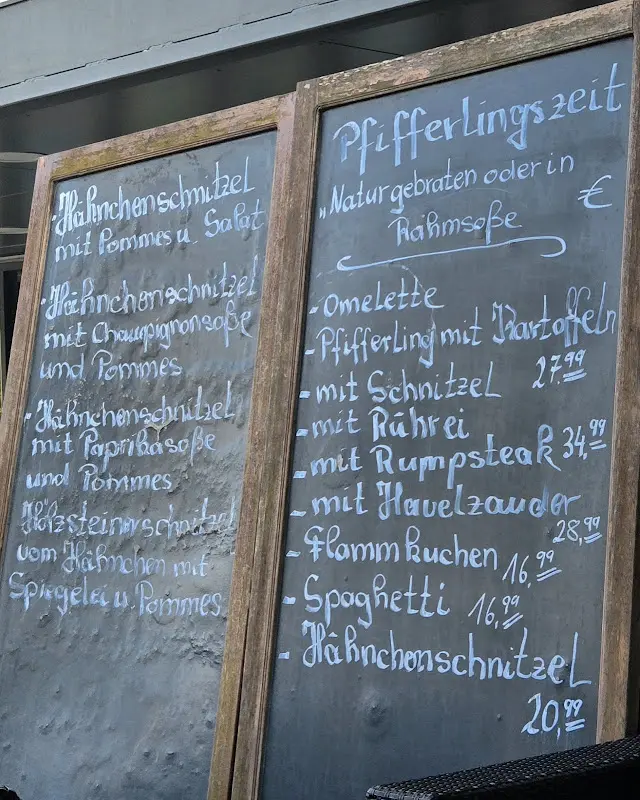 - Hähnchenschnitzel
mit Pommes u. Salat
- Hähnchenschnitzel
mit Chaupignonsoße
und Pommes
- Hähnchenschnitzel
mit Paprikasoße
und Pommes
Holzsteinerschnitzel
vom Hähnchen mit
Spiegelei u. Pommes
Pfifferlingszeit
„Natur gebraten oder in
Rahmsoße €
- Omelette
- Pfifferling mit Kartoffeln
- mit Schnitzel 27,99
- mit Rührei
- mit Rumpsteak 34,99
- mit Havelzander
28,99
- Flammkuchen 16,99
- Spaghetti 16,99
- Hähnchenschnitzel
20,99